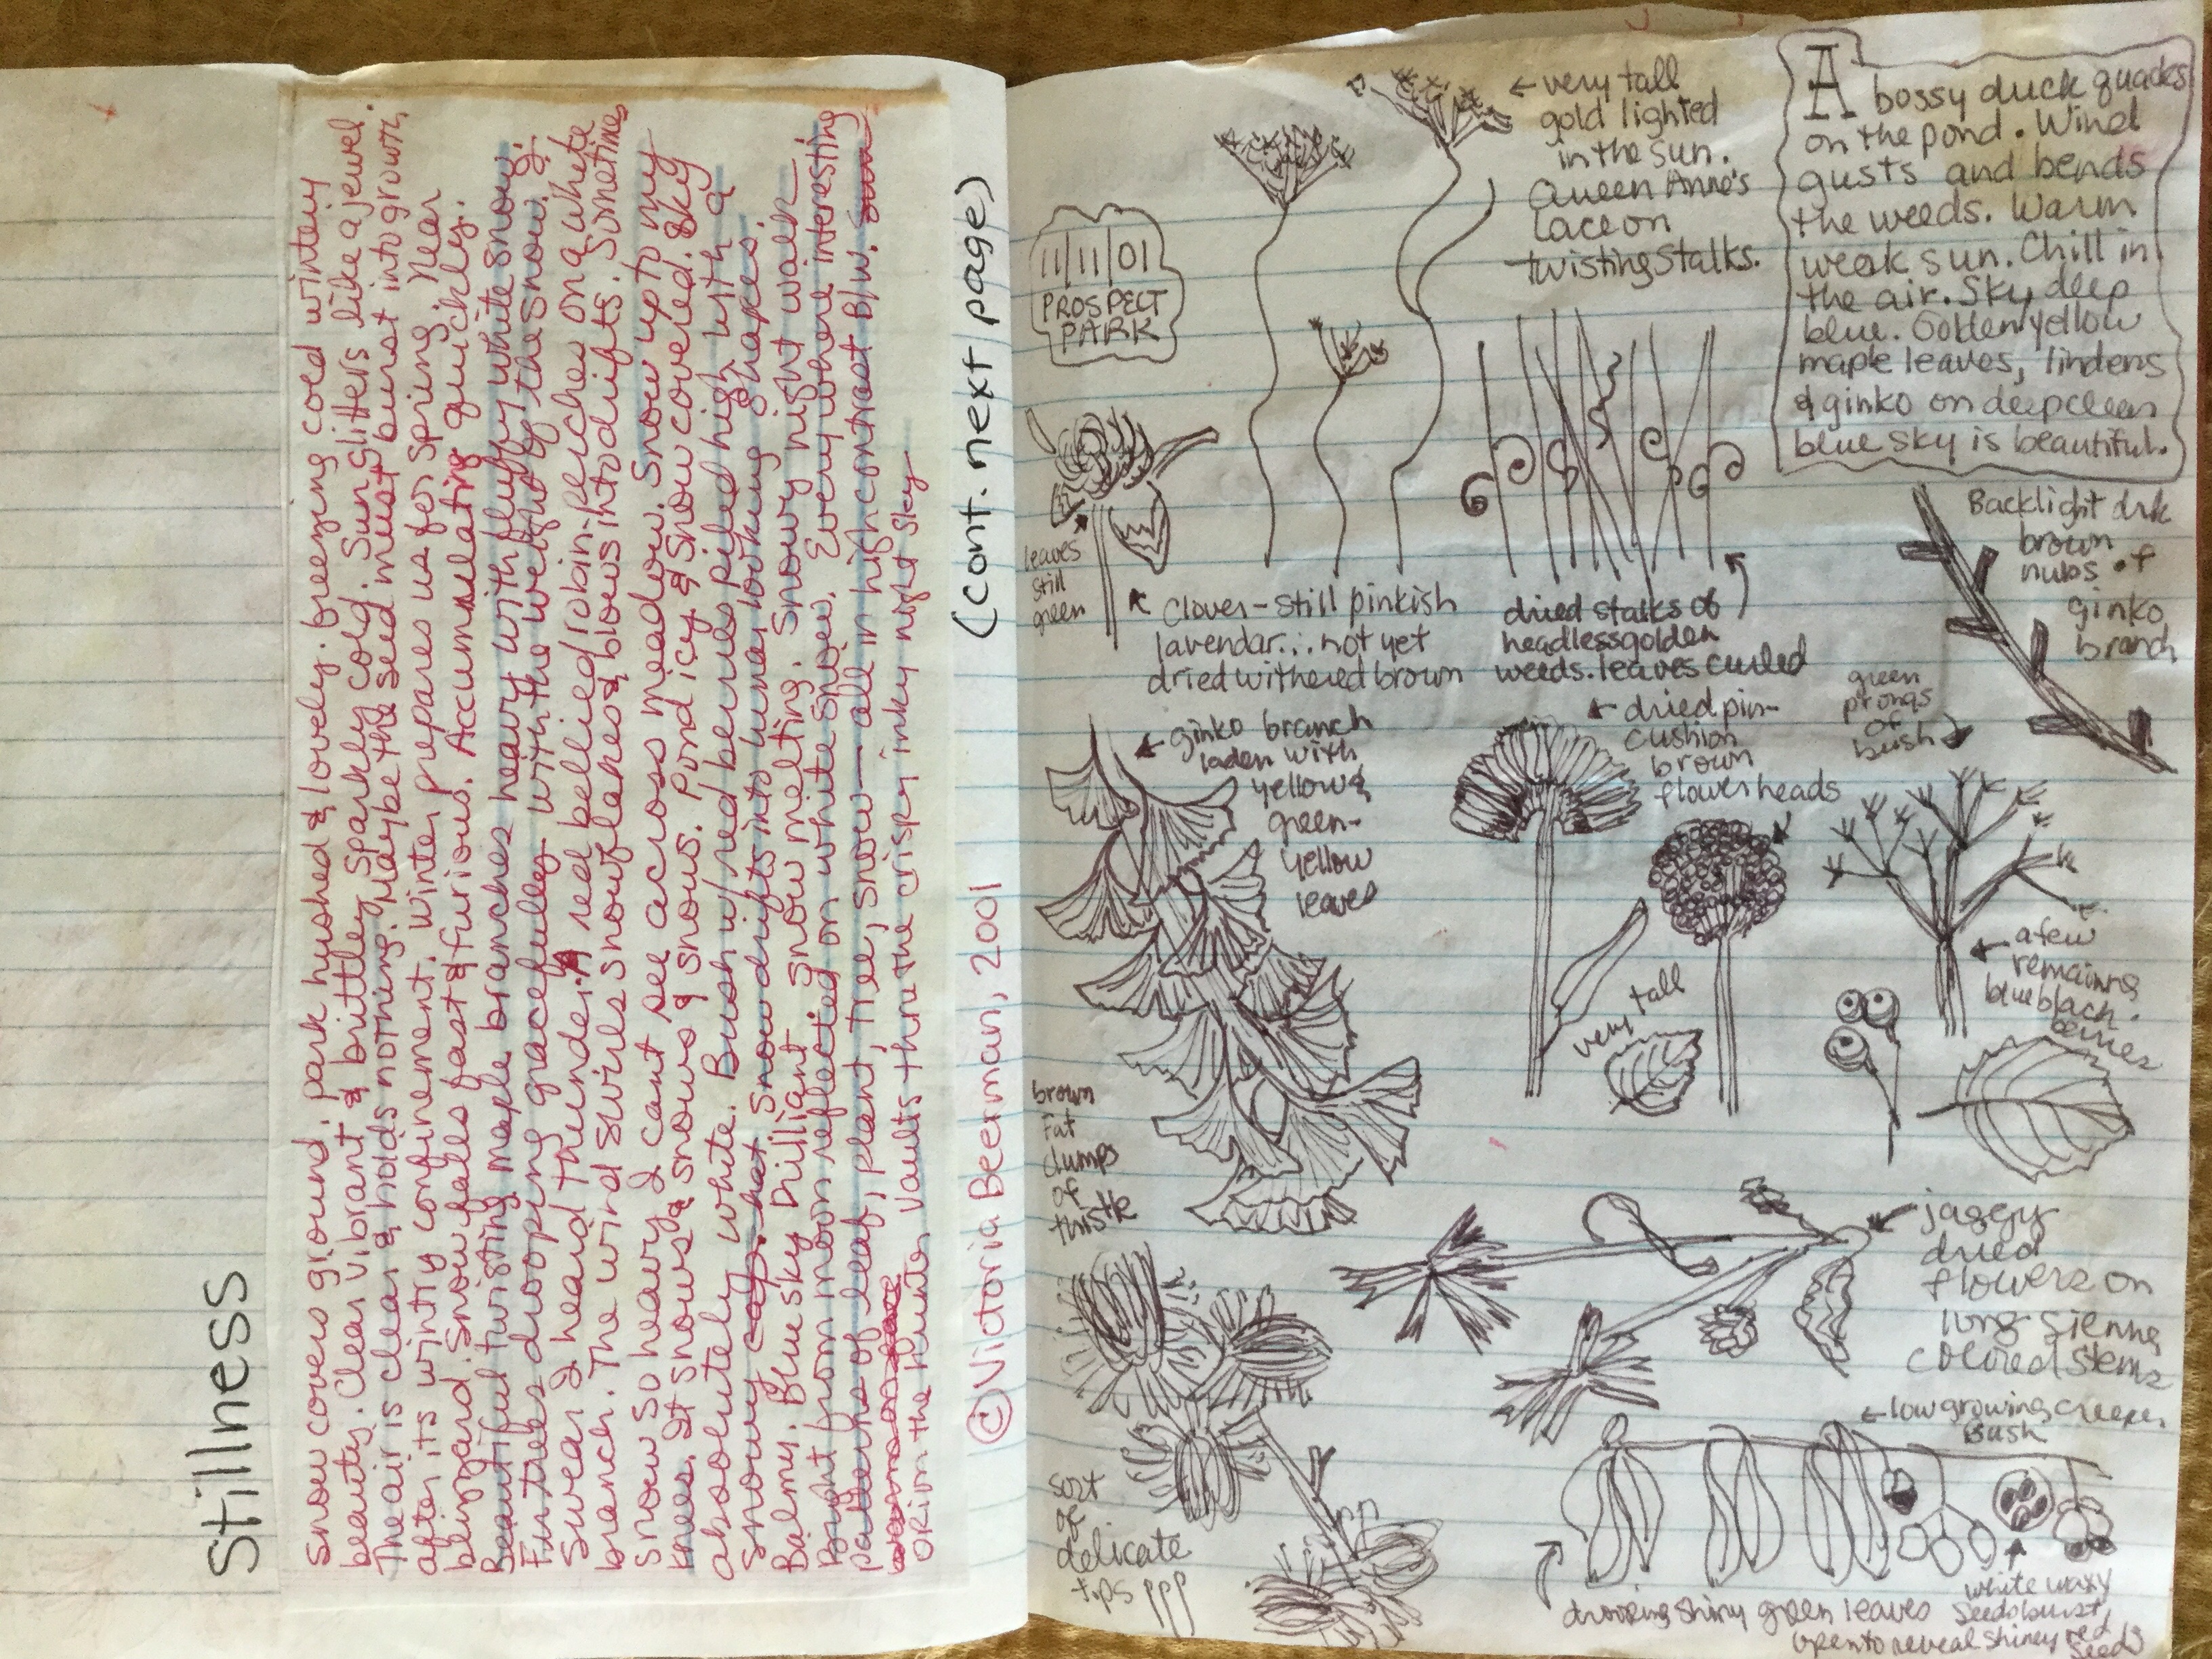 Stillness
Snow covers ground. park hushed & lovely. freezing cold wintery
beauty. Clear vibrant & brittley sparkly cold. Sun glitters like a jewel.
The air is clear & holds nothing. Maybe the seed must burst into growth
after its wintry confinement. Winter prepares us for spring. Near
blizzard. Snow falls fast & furious. Accumulating quickly.
Beautiful twisting maple branches heavy with fluffy white snow.
Fir trees drooping gracefully with the weight of the snow.
Swear I heard thunder. A red bellied robin perches on a white
branch. The wind swirls snowflakes & blows into drifts. Sometimes
snow so heavy I cant see across meadow. Snow up to my
knees. It snows & snows & snows. Pond icy & snow covered. Sky
absolutely white. Bush w/ red berries piled high with a
snowy cap. hat Snow drifts into lunar looking shapes.
Balmy. Blue sky brilliant snow melting. Snowy night walk.
Bright from moon reflected on white snow. Everywhere interesting
patterns of leaf, plant, tree, snow — all in high contrast B/W.
Orion the hunter vaults thru the crispy inky night sky
© Victoria Beerman, 2001
(cont. next page)
11/11/01
PROSPECT
PARK
← very tall
gold lighted
in the sun.
Queen Anne's
Lace on
twisting stalks.
A bossy duck quacks
on the pond. Wind
gusts and bends
the weeds. Warm
weak sun. Chill in
the air. Sky deep
blue. Golden yellow
maple leaves, lindens
& ginko on deep clear
blue sky is beautiful.
leaves
still
green
Clover - still pinkish
lavendar... not yet
dried withered brown
dried stalks of
headless golden
weeds. leaves curled
Backlight drk
brown
nubs of
ginko
branch
ginko branch
laden with
yellow &
green-
yellow
leaves
← dried pin-
cushion
brown
flower heads
green
prongs
of
bush
very tall
← a few
remaining
blue black
berries
brown
fat
clumps
of
thistle
jaggy
dried
flowers on
long sienna
colored stems
sort
of
delicate
tips
← low growing creeper
Bush
drooping shiny green leaves
white waxy
seeds burst
open to reveal shiney red
seeds